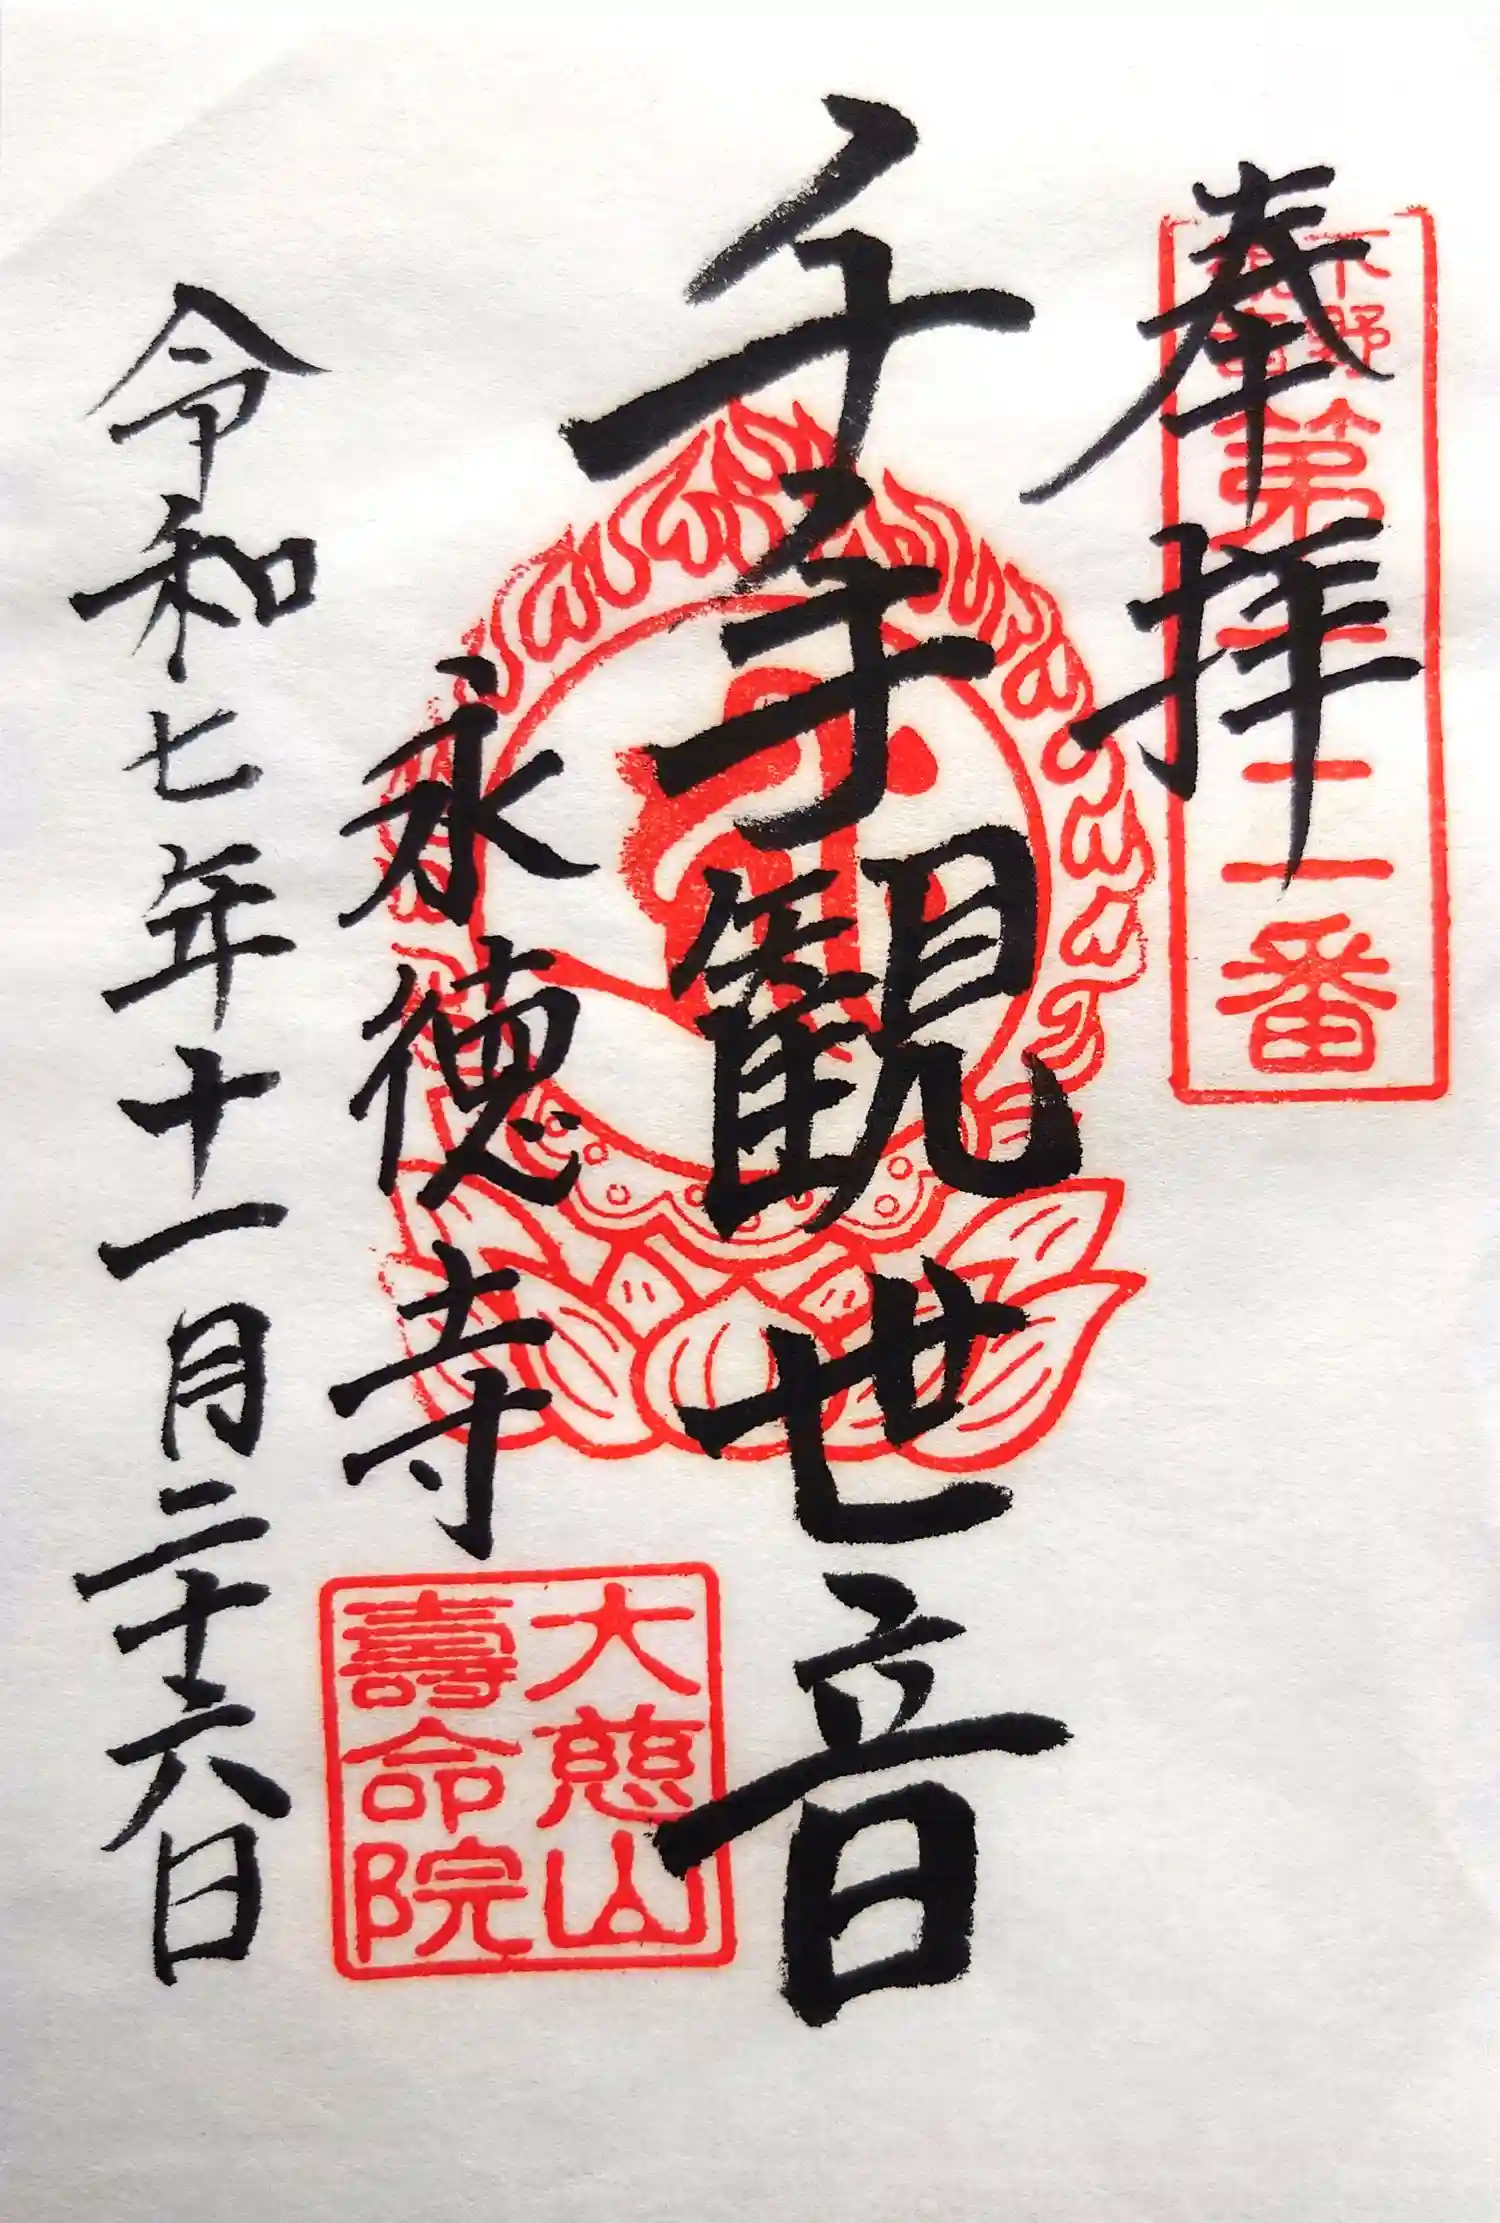 奉拝
下野
観音
第十二番
千手観世音
永徳寺
大慈山
壽命院
令和七年十一月二十六日